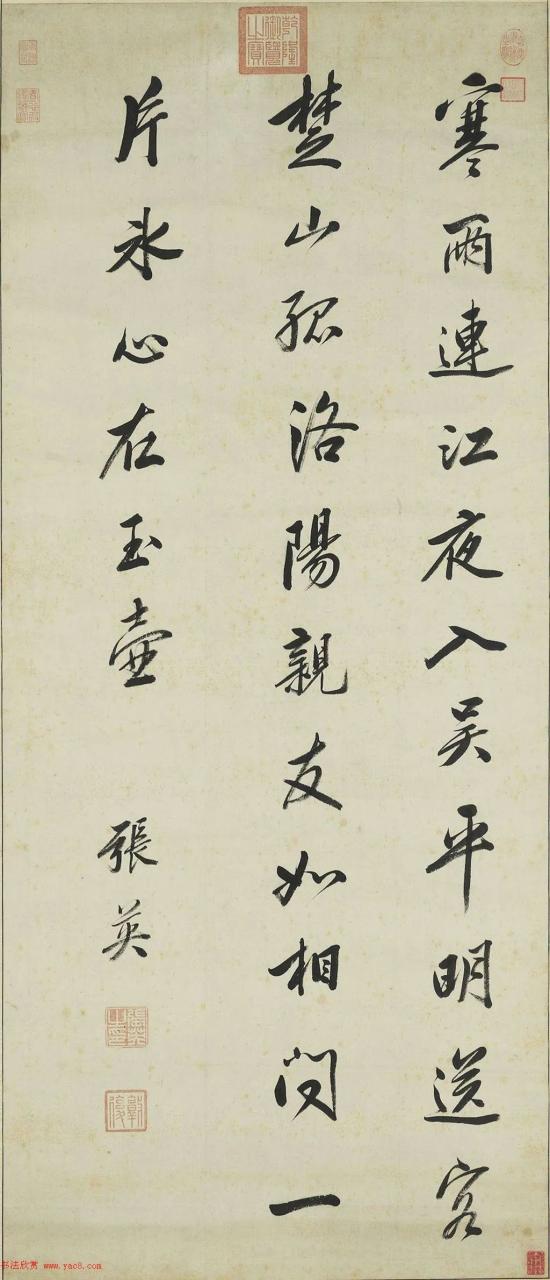 寒雨連江夜入吴平明送客
楚山孤洛陽親友如相問一
片冰心在玉壺
張英
乾隆御覽之寶
書法欣赏 www.yac8.com